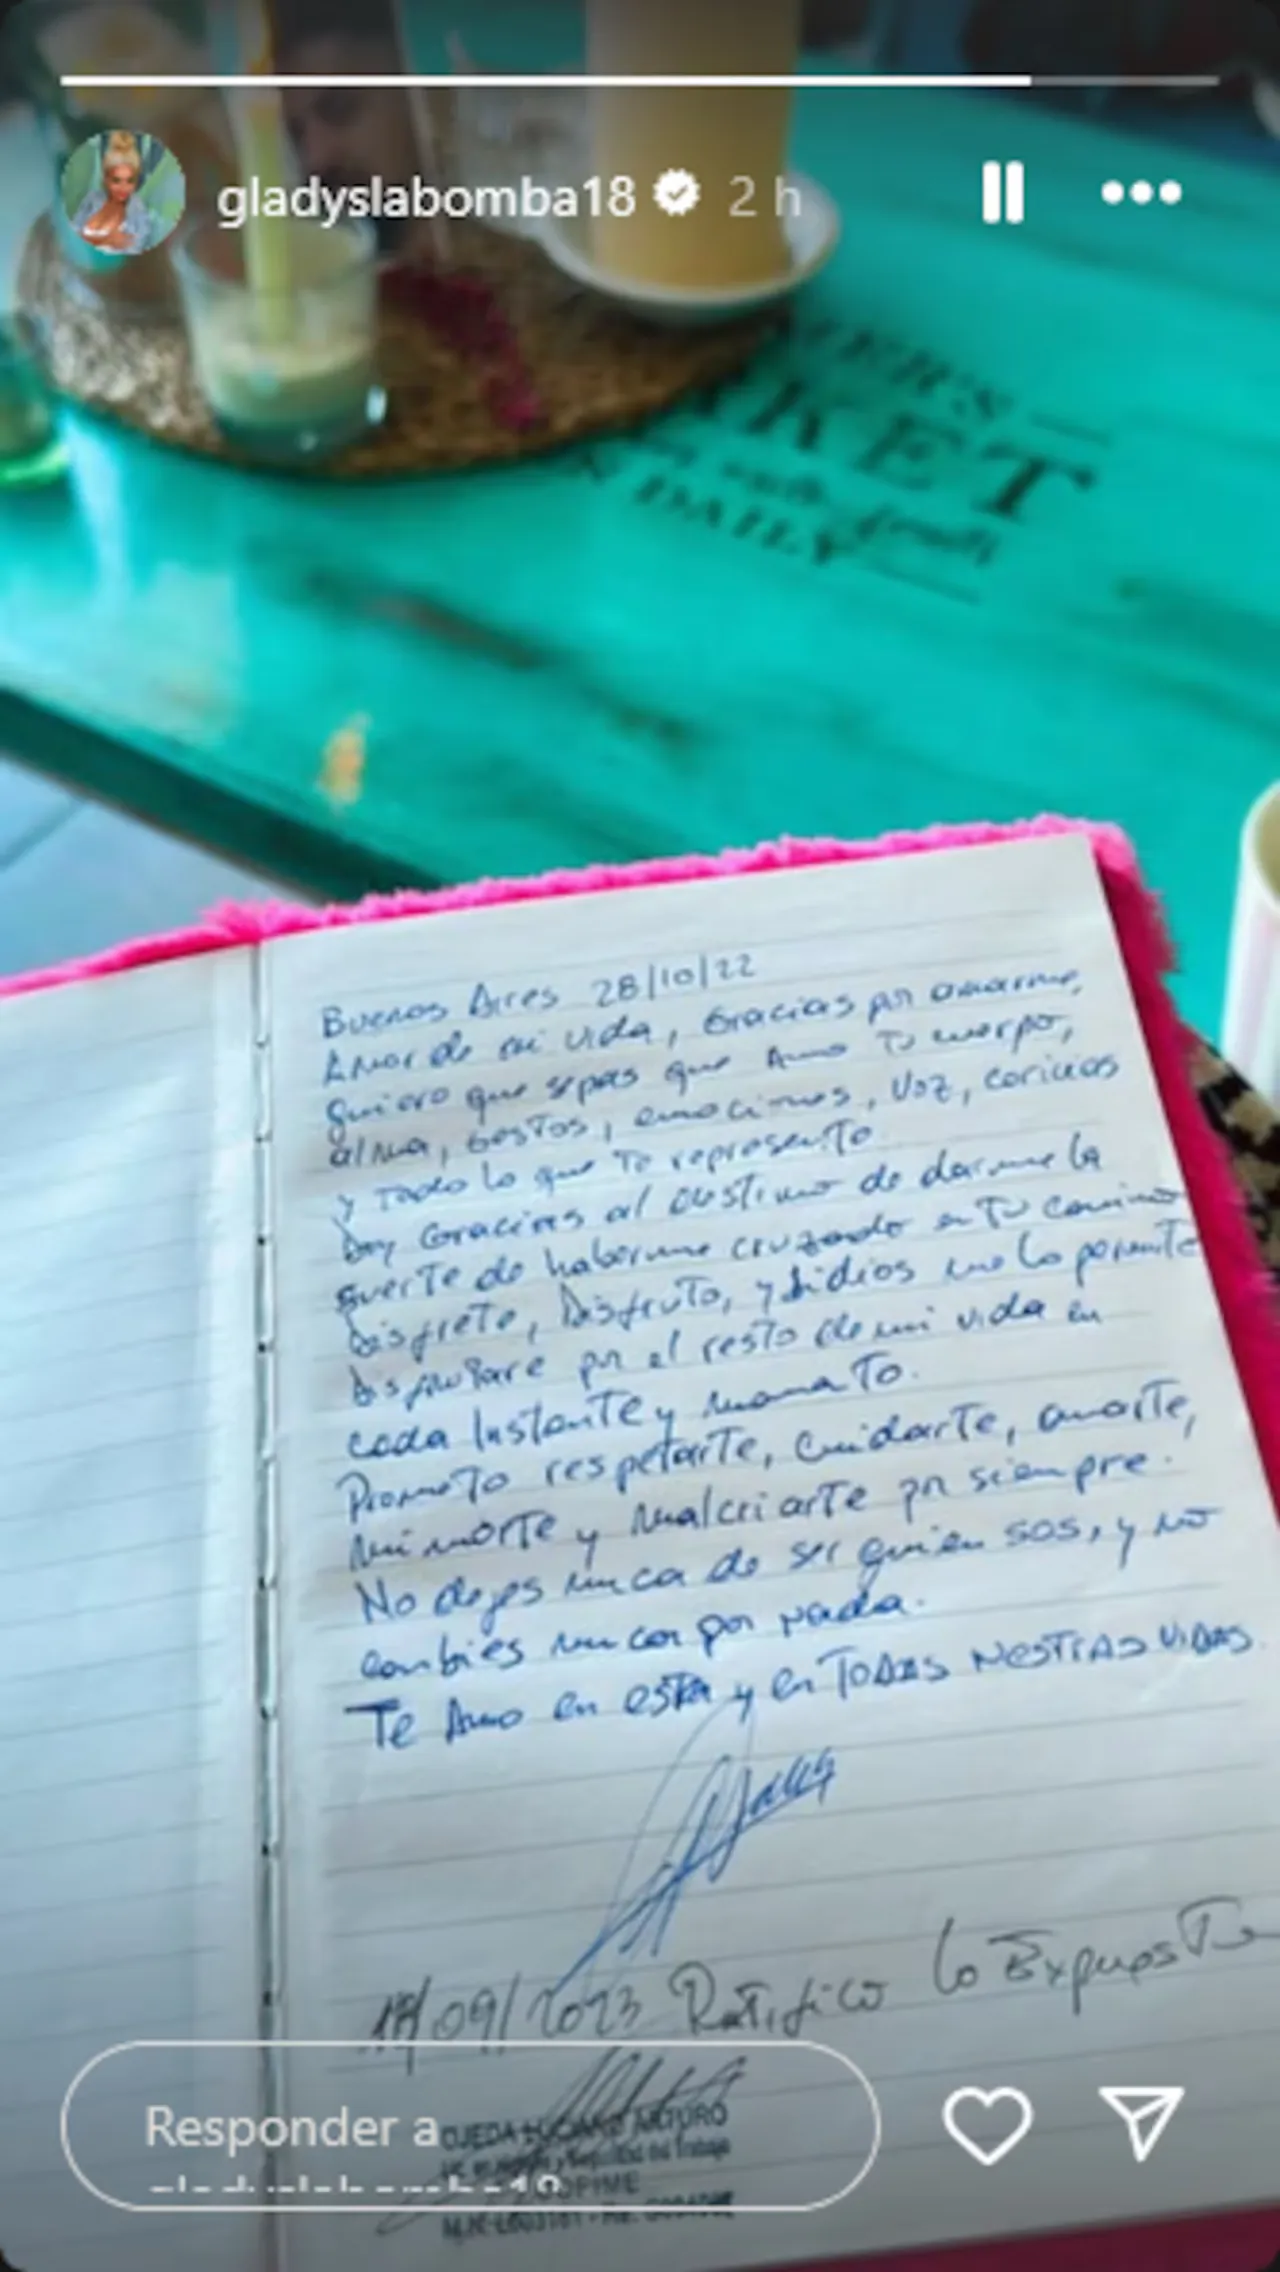 gladyslabomba18 2 h
KET
DAILY
Buenos Aires 28/10/22
Amor de mi vida, Gracias por amarme,
quiero que sepas que Amo Tu cuerpo,
alma, Gestos, emociones, voz, caricias
y Todo lo que Te representa
Doy Gracias al destino de darme la
suerte de haberme cruzado en Tu camino
Disfrete, Disfruto, y si dios me lo permite
disfrutare por el resto de mi vida en
cada Instante y momento.
Prometo respetarte, cuidarte, amarte,
mimarte y malcriarte por siempre.
No dejes nunca de ser quien sos, y no
cambies nunca por nada.
Te Amo en esta y en TODAS NESTRAS VIDAS
/09/2023 Ratifico lo Expuesto
Responder a
gladyslabomba18
OJEDA LUCIANO ARTURO
COPIME